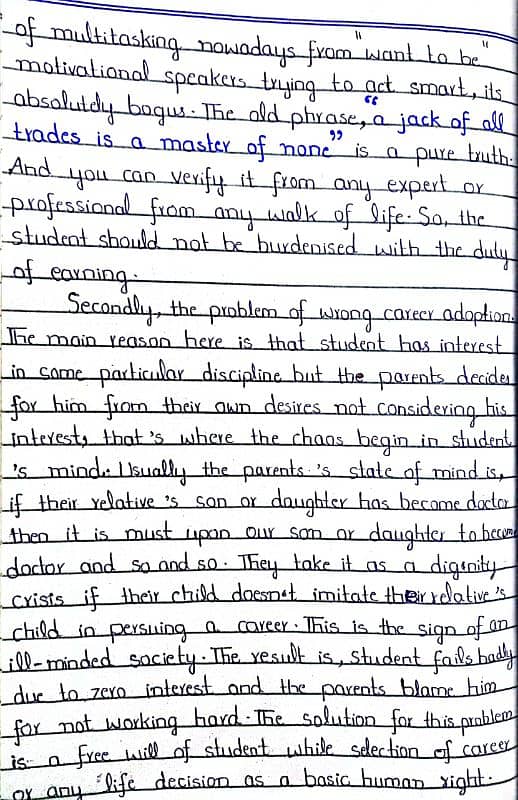 of multitasking nowadays from "want to be"
motivational speakers trying to act smart, its
absolutely bogus. The old phrase, "a jack of all
trades is a master of none" is a pure truth.
And you can verify it from any expert or
professional from any walk of life. So, the
student should not be burdenised with the duty
of earning.
Secondly, the problem of wrong career adoption.
The main reason here is that student has interest
in some particular discipline but the parents decides
for him from their own desires not considering his
interest, that's where the chaos begin in student
's mind. Usually the parents 's state of mind is,
if their relative 's son or daughter has become doctor
then it is must upon our son or daughter to become
doctor and so and so. They take it as a digsnity
crisis if their child doesnot imitate their relative's
child in persuing a career. This is the sign of an
ill-minded society. The result is, student fails badly
due to zero interest and the parents blame him
for not working hard. The solution for this problem
is a free will of student while selection of career
or any life decision as a basic human right.